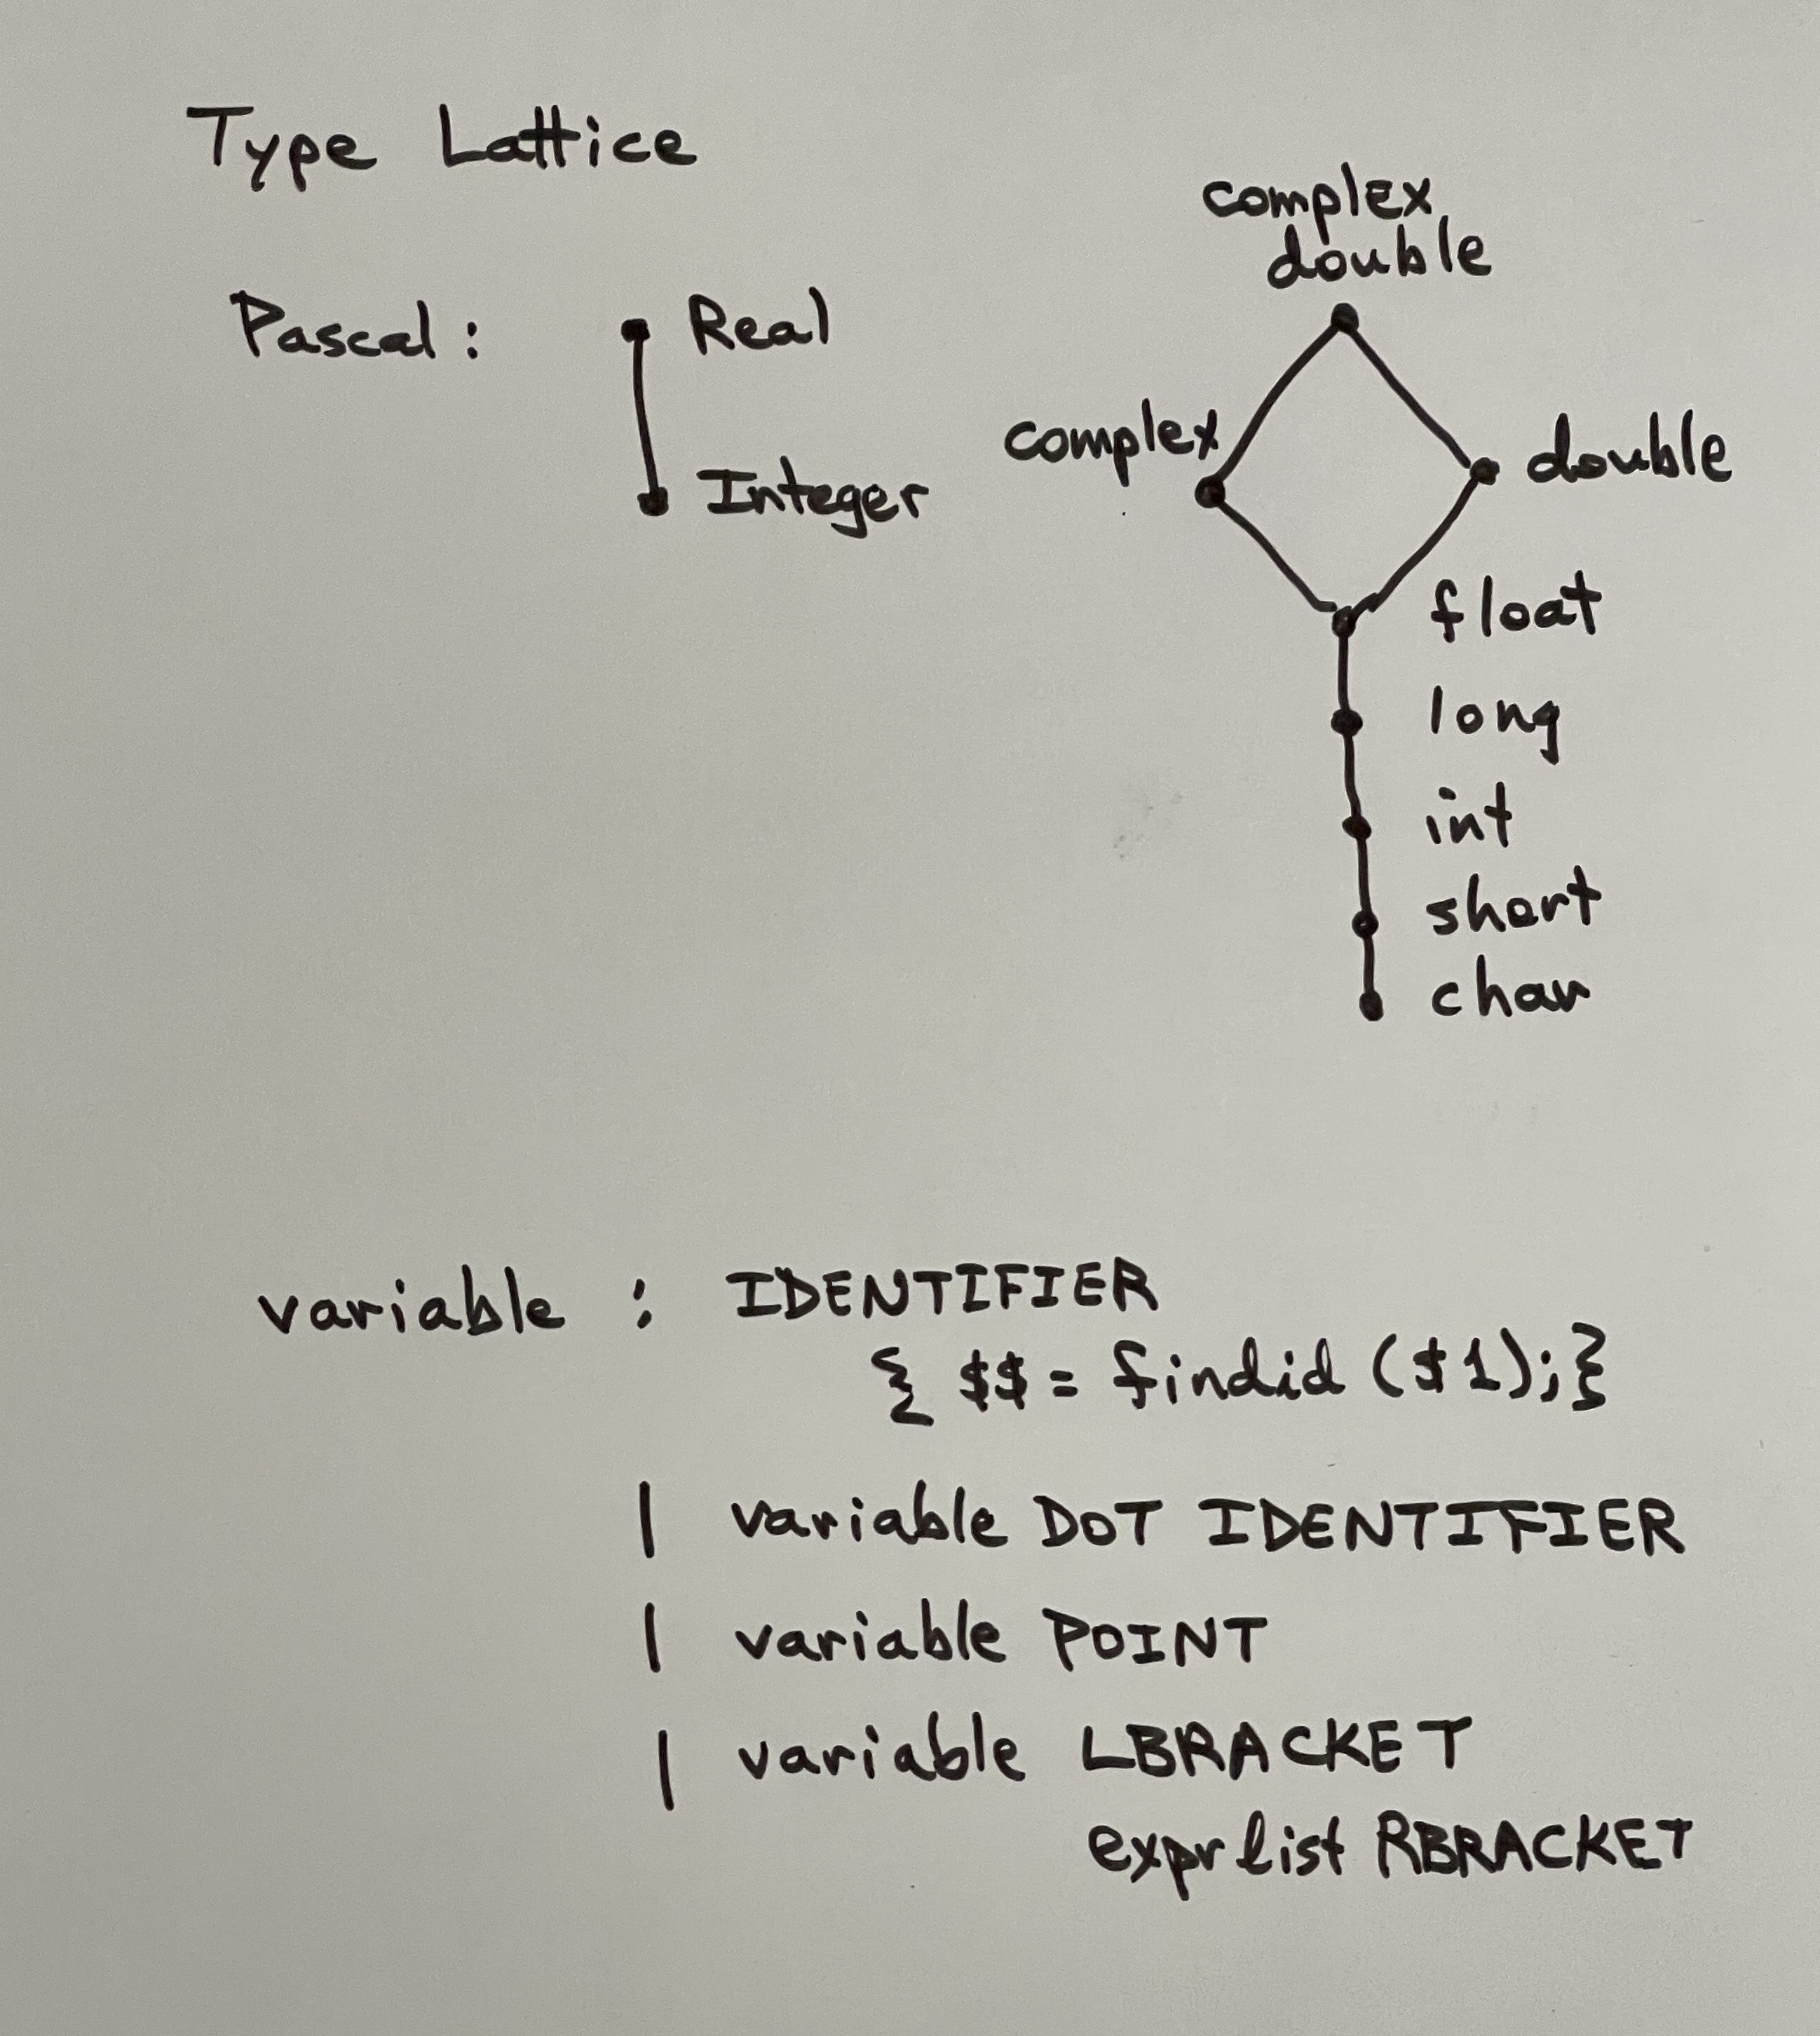 Type Lattice
Pascal :
Real
Integer
complex
double
complex
double
float
long
int
short
char
variable : IDENTIFIER
{ $$ = findid ($1);}
| variable DOT IDENTIFIER
| variable POINT
| variable LBRACKET
exprlist RBRACKET